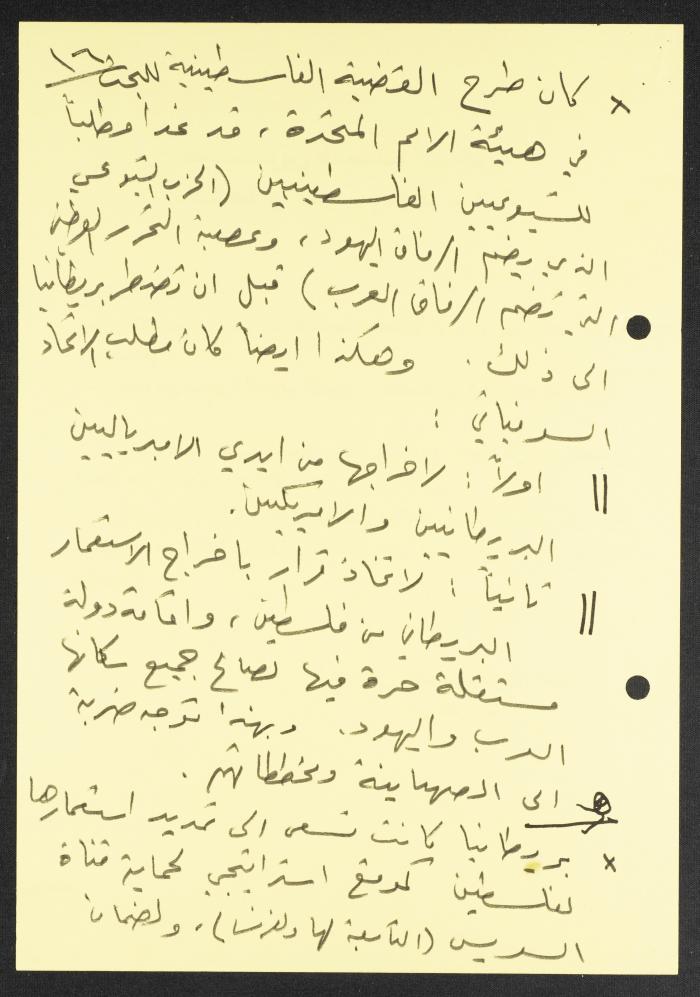 ١٦
× كان طرح القضية الفلسطينية للبحث
في هيئة الامم المتحدة ، قد غدا مطلباً
للشيوعيين الفلسطينيين (الحزب الشيوعي
الذي يضم الرفاق اليهود ، وعصبة التحرر الوطني
التي تضم الرفاق العرب) قبل ان تضطر بريطانيا
الى ذلك . وهكذا ايضاً كان مطلب الاتحاد
السوفياتي :
اولاً : لاخراجها من ايدي الامبرياليين
البريطانيين والاميركيين .
ثانياً : لاتخاذ قرار باخراج الاستعمار
البريطاني من فلسطين ، واقامة دولة
مستقلة حرة فيها لصالح جميع سكانها
العرب واليهود . وبهذا توجه ضربة
الى الصهاينة ومخططاتهم .
× بريطانيا كانت تسعى الى تمديد استعمارها
لفلسطين كموقع استراتيجي لحماية قناة
السويس (التابعة لها ولفرنسا) ، ولضمان